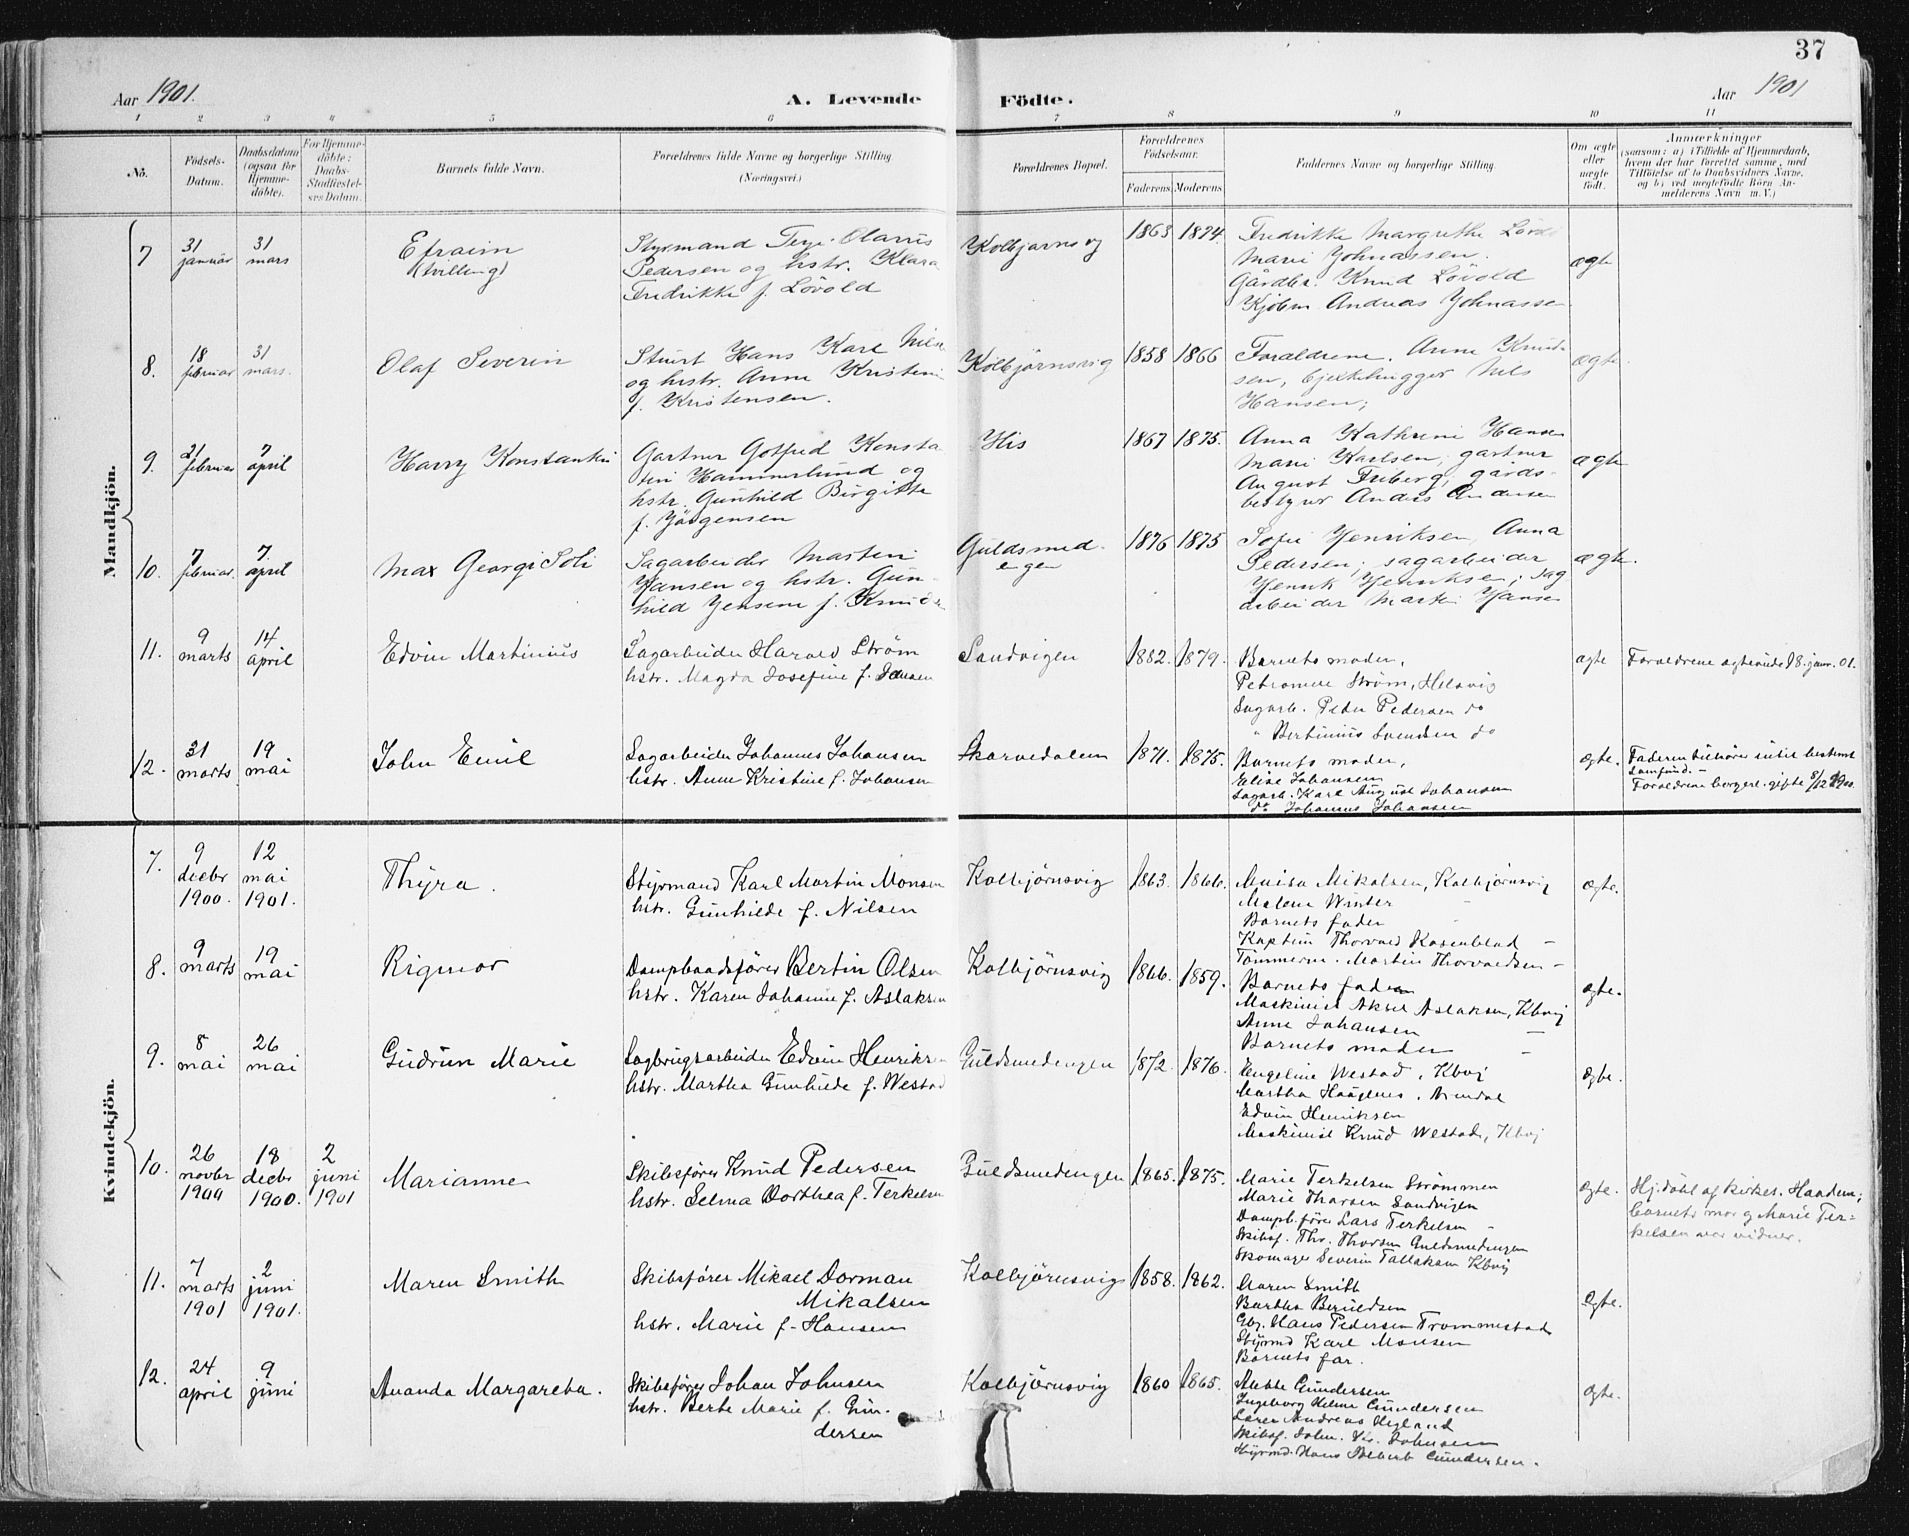 37
Aar 1901.
A. Levende Födte.
Aar 1901
1 2 3 4 5 6 7 8 9 10 11
No.
Födsels-
Datum.
Daabsdatum
(ogsaa for
Hjemme-
döbte).
For Hjemme-
döbte:
Daabs-
Stadfæstel-
ses Datum.
Barnets fulde Navn.
Forældrenes fulde Navne og borgerlige Stilling.
(Næringsvei.)
Forældrenes Bopæl.
Forældrenes
Födselsaar.
Faderens Moderens
Faddernes Navne og borgerlige Stilling.
Om ægte
eller
uægte
födt.
Anmærkninger
(saasom: a) i Tilfælde af Hjemmedaab,
hvem der har forrettet samme, med
Tilföielse af to Daabsvidners Navne,
og b) ved uægtefödte Börn An-
melderens Navn m. V.)
Mandkjön.
7
31
januar
31
mars
Efraim
(tvilling)
Styrmand Terje Olarius
Pedersen og hstr. Klara
Fredrikke f. Lövold
Kolbjørnsvig
1863 1874.
Fredrikke Margrethe
Marie Johnassen.
Gårdbr. Knud Lövold
Kjöbm Andreas Johnassen
ægte
8.
18
februar
31
mars.
Olaf Severin
Stuert Hans Karl
og hstr. Anne Kristine
f. Kristensen.
Kolbjörnsvig
1858 1866
Forældrene. Anne Knud-
sen, Nils
Hansen;
ægte
9.
21
februar
7
april
Harry Konstantin
Gartner Gotfred Konsta-
tin Hammerlund og
hstr. Gunhild Birgitte
f. Jörgensen
His
1867 1875.
Anna Kathrine Hansen
Marie Karlsen; gartner
August Friberg, gårds-
bestyrer Anders Andersen
ægte
10.
7
februar.
7.
april
Max Georg Soli
Sagarbeider Martin
Hansen og hstr. Gun-
hild Jensine f. Knudsen
Guldsmed-
engen
1876 1875
Sofie Henriksen, Anna
Pedersen; sagarbeider
Henrik Henriksen; sag
arbeider Martin Hansen
ægte.
11.
9
marts
14
april
Edvin Martinius
Sagarbeider Harald Ström
hstr. Magda Josefine f. Jensen
Sandvigen
1882. 1879.
Barnets moder,
Petronelle Strøm, Hisøvig
Sagarb. Peder Pedersen do
" Bertinius Svendsen do
ægte
Forældrene ægteviede 18. janr. 01.
12.
31
marts
19
mai
John Emil
Sagarbeider Johannes Johansen
hstr. Anne Kristine f. Johansen
Skarvedalen
1871. 1875.
Barnets moder,
Elise Johansen
Sagarb. Karl August Johansen
do Johannes Johansen
ægte.
Faderen tilhører intet bestemt
Samfund. –
Forældrene borgerl. gifte 8/12 1900.
Kvindekjön.
7.
9
decbr
1900.
12
mai
1901.
Thyra.
Styrmand Karl Martin Monsen
hstr. Gunhilde f. Nilsen
Kolbjörnsvig
1863. 1866.
Maisa Mikalsen, Kolbjörnsvig
Malene Winter
Barnets fader
Kaptein Thorvald Rosenblad –
Tömmerm. Martin Thorvaldsen –
ægte.
8.
9
marts
19
mai
Rigmor
Dampbaadsförer Bertin Olsen
hstr. Karen Johanne f. Aslaksen
Kolbjörnsvig
1866. 1859.
Barnets fader
Maskinist Aksel Aslaksen, Kbvg
Anne Johansen –
Barnets moder –
ægte.
9.
8
mai
26
mai
Gudrun Marie
Sagbrugsarbeider Edvin Henriksen
hstr. Martha Gunhilde f. Westad
Guldsmedengen
1872. 1876.
Engeline Westad, Kbvg
Martha Haagenes, Arendal
Edvin Henriksen
Maskinist Knud Westad, Kbvg
ægte.
10.
26
novbr
1900
18
decbr
1900.
2
juni
1901
Marianne
Skibsfører Knud Pedersen
hstr. Selma Dorthea f. Terkelsen
Guldsmedengen
1865. 1875.
Marie Terkelsen Strømmen
Marie Thorsen Sandvigen
Dampb.fører Lars Terkelsen –
Skibsf. Thr. Thorsen Guldsmedengen
Skomager Severin Tallaksen Kbvg
ægte.
Hj.døbt af kirkes. Haadem;
barnets mor og Marie Ter-
kelsen var vidner.
11.
7
marts
1901
2
juni
1901.
Maren Smith
Skibsfører Mikael Dorman
Mikalsen
hstr. Marie f. Hansen
Kolbjörnsvig
1858. 1862.
Maren Smith
Bertha Beruldsen
Gbr. Hans Pedersen Trommestad
Styrmd Karl Monsen
Barnets far.
ægte.
12.
24
april
9
juni
Ananda Margaretha.
Skibsfører Johan Johnsen
hstr. Berte Marie f. Gun-
dersen
Kolbjörnsvig
1860 1865.
Gundersen
Ingeborg Helene Gundersen
Lærer Andreas Hegland
Skibsf. John. Kr. Johnsen
Styrmd. Hans Gundersen.
ægte.